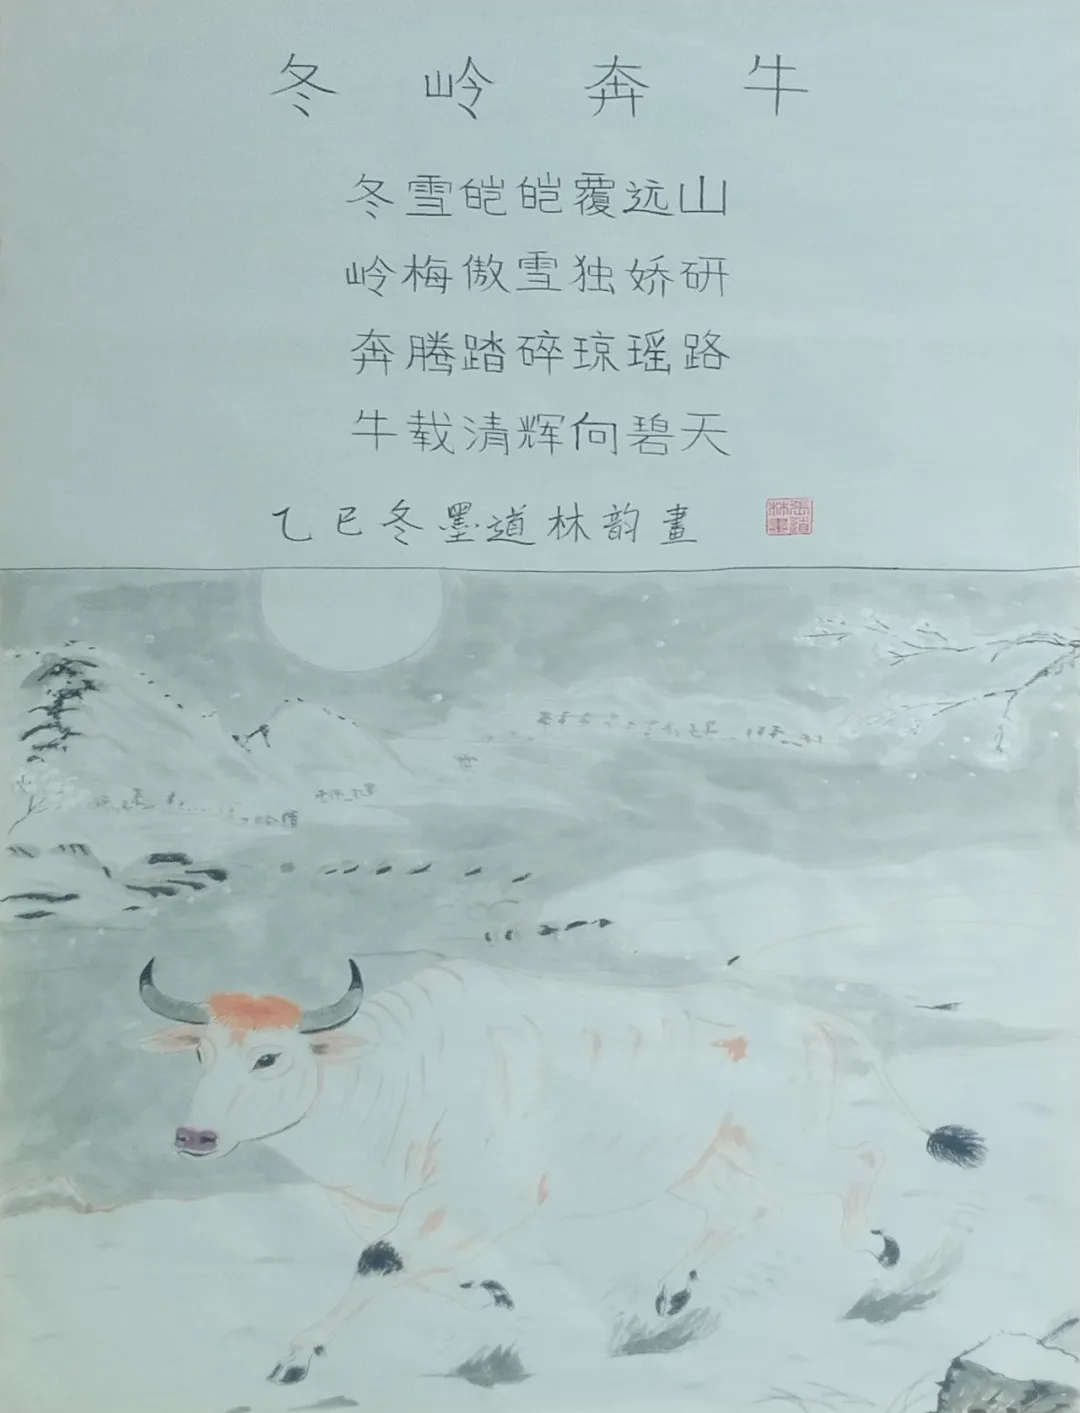 冬岭奔牛
冬雪皑皑覆远山
岭梅傲雪独娇研
奔腾踏碎琼瑶路
牛载清辉向碧天
乙巳冬墨道林韵畫